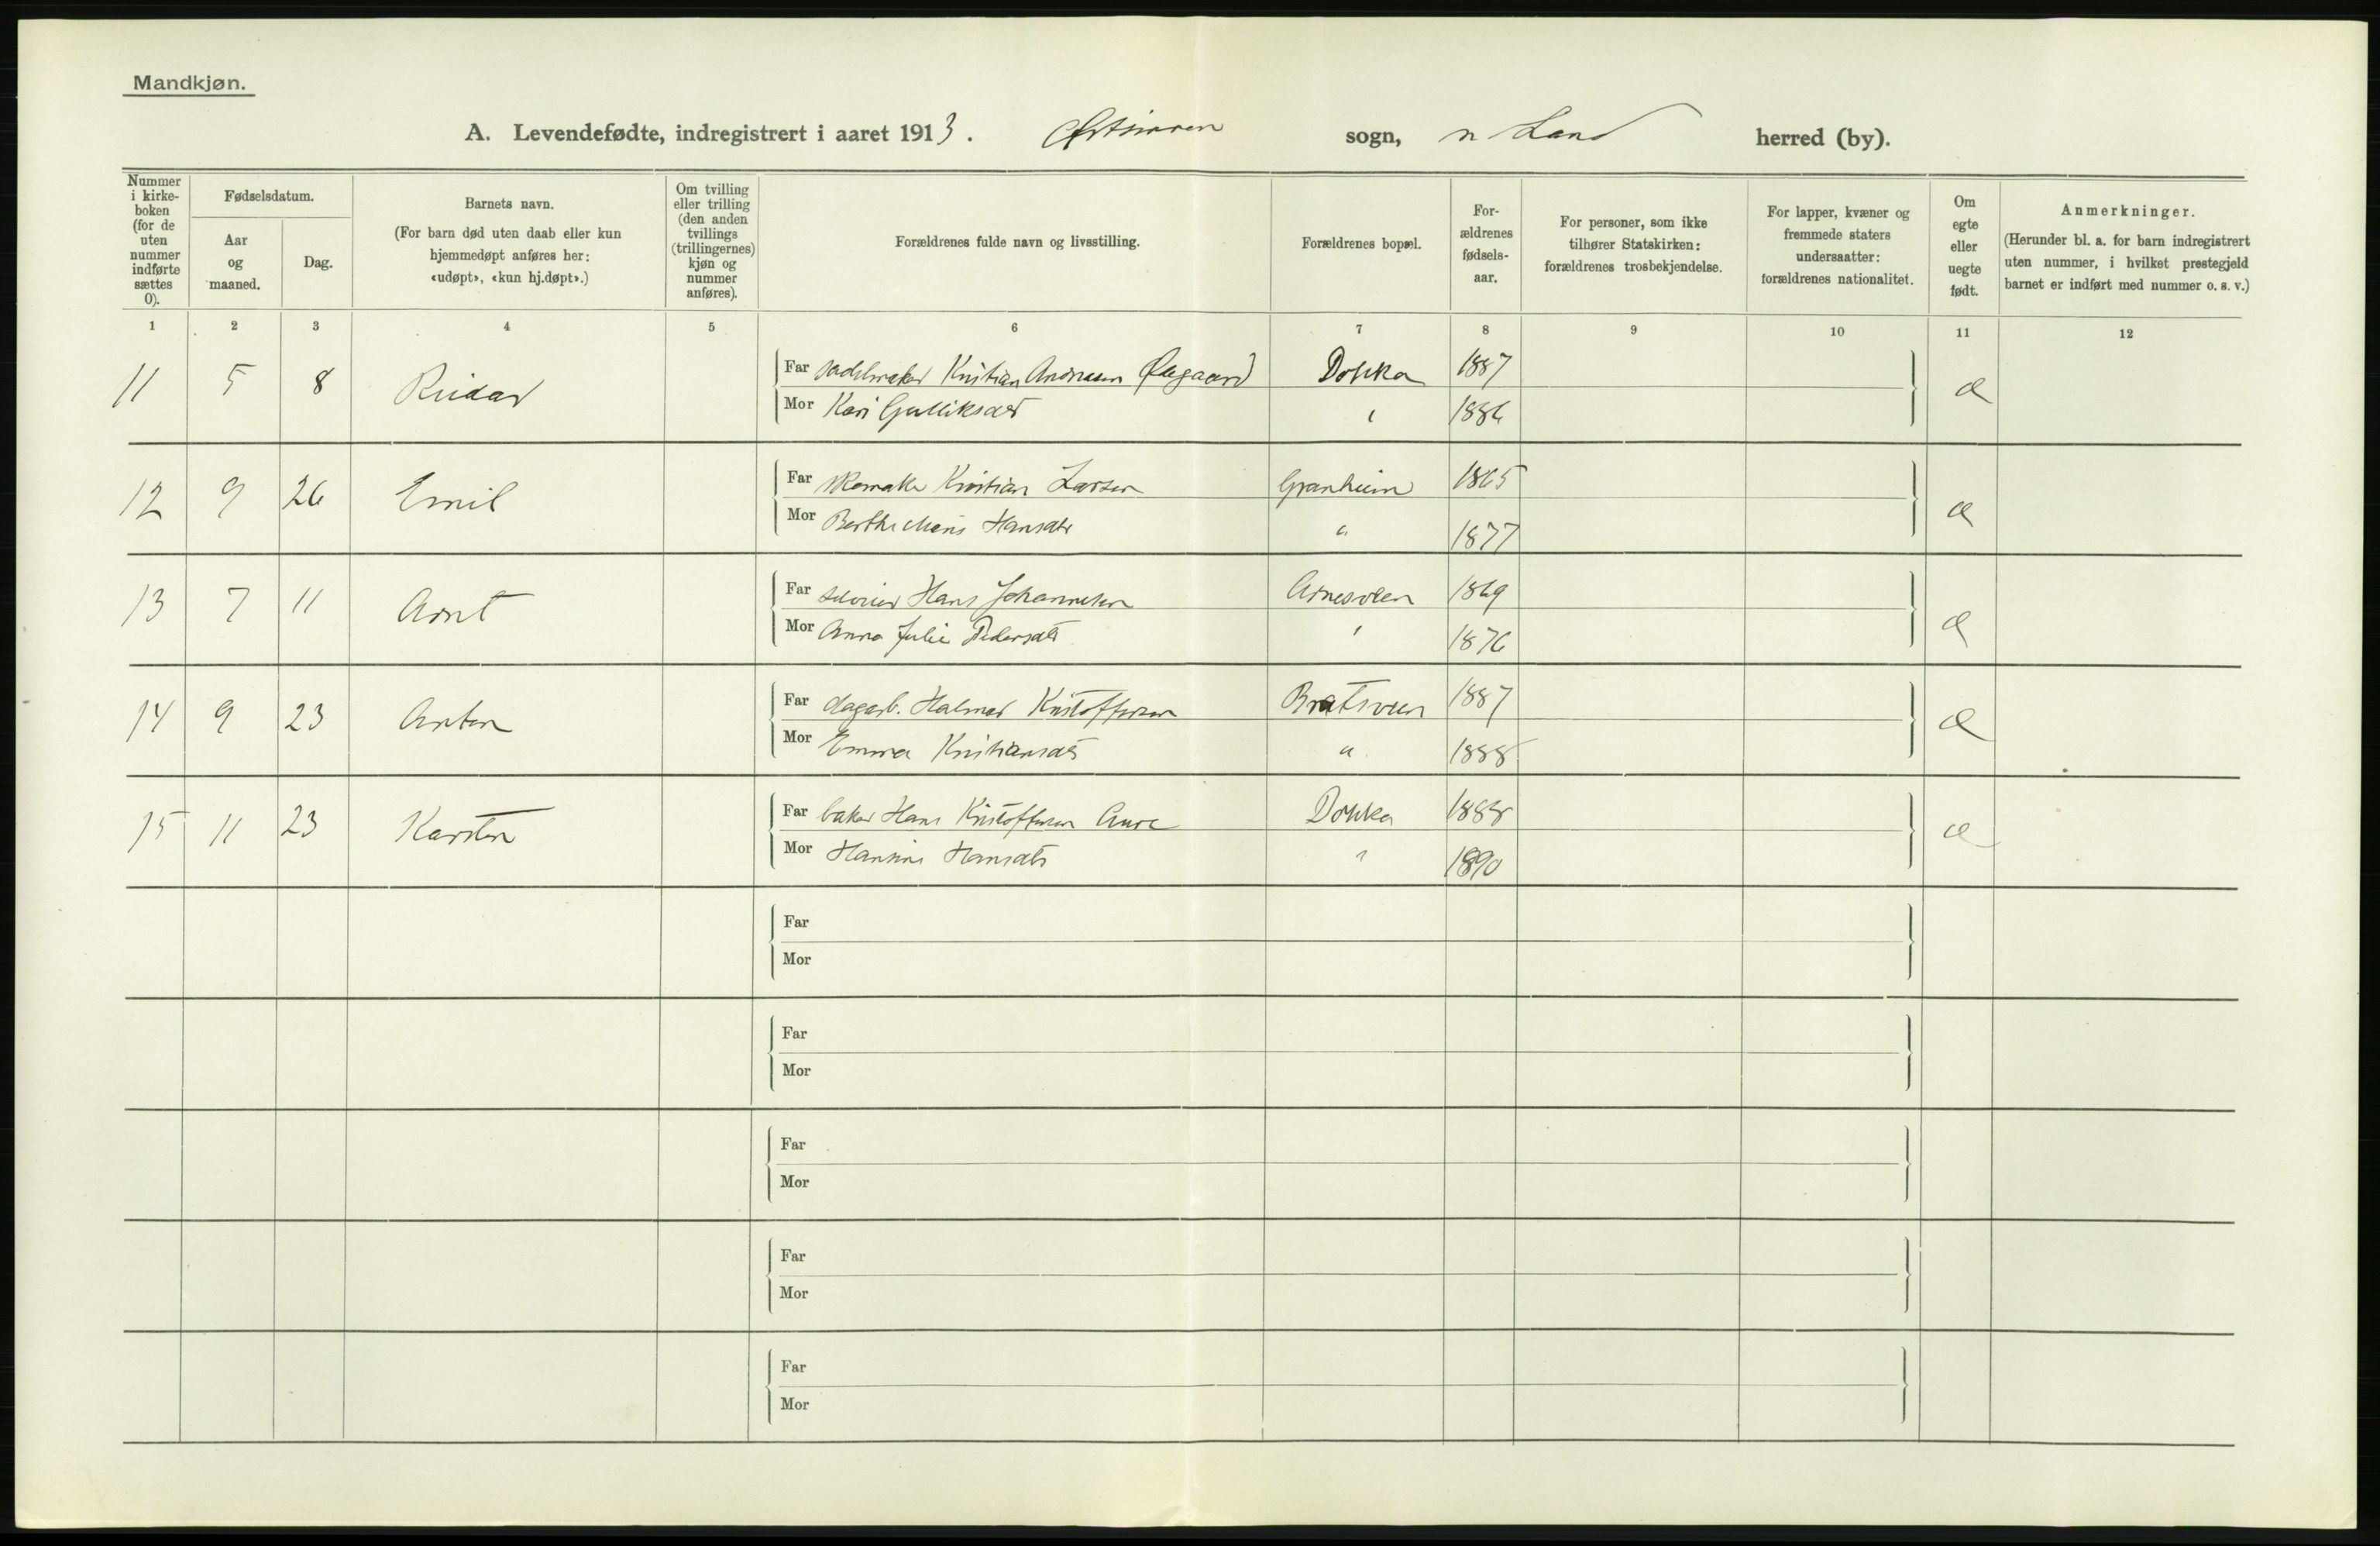 Mandkjøn.
A. Levendefødte, indregistrert i aaret 1913. Østsinnen sogn, n Land herred (by).
Nummer i kirkeboken (for de uten nummer indførte sættes 0).
Fødselsdatum.
Aar og maaned.
Dag.
Barnets navn.
(For barn død uten daab eller kun hjemmedøpt anføres her: «udøpt», «kun hj.døpt».)
Om tvilling eller trilling (den anden tvillings (trillingernes) kjøn og nummer anføres).
Forældrenes fulde navn og livsstilling.
Forældrenes bopæl.
Forældrenes fødselsaar.
For personer, som ikke tilhører Statskirken: forældrenes trosbekjendelse.
For lapper, kvæner og fremmede staters undersaatter: forældrenes nationalitet.
Om egte eller uegte født.
Anmerkninger.
(Herunder bl. a. for barn indregistrert uten nummer, i hvilket prestegjeld barnet er indført med nummer o. s. v.)
1 2 3 4 5 6 7 8 9 10 11 12
11 5 8 Reidar Far sadelmaker Kristian Andreasen Øegaard Dokka 1887 e
Mor Kari Gulliksdtr " 1886
12 9 26 Emil Far skomaker Kristian Larsen Granheim 1865 e
Mor Berthe Marie Hansdtr " 1877
13 7 11 Arnt Far Hans Johannesen Arnesveen 1869 e
Mor Anna Julie Pedersdtr " 1876
14 9 23 Anton Far dagarb. Halmar Kristoffersen Bratsveen 1887 e
Mor Emma Kristiansdtr " 1888
15 11 23 Karsten Far baker Hans Kristoffersen Dokka 1888 e
Mor Hansine Hansdtr " 1890
Far
Mor
Far
Mor
Far
Mor
Far
Mor
Far
Mor